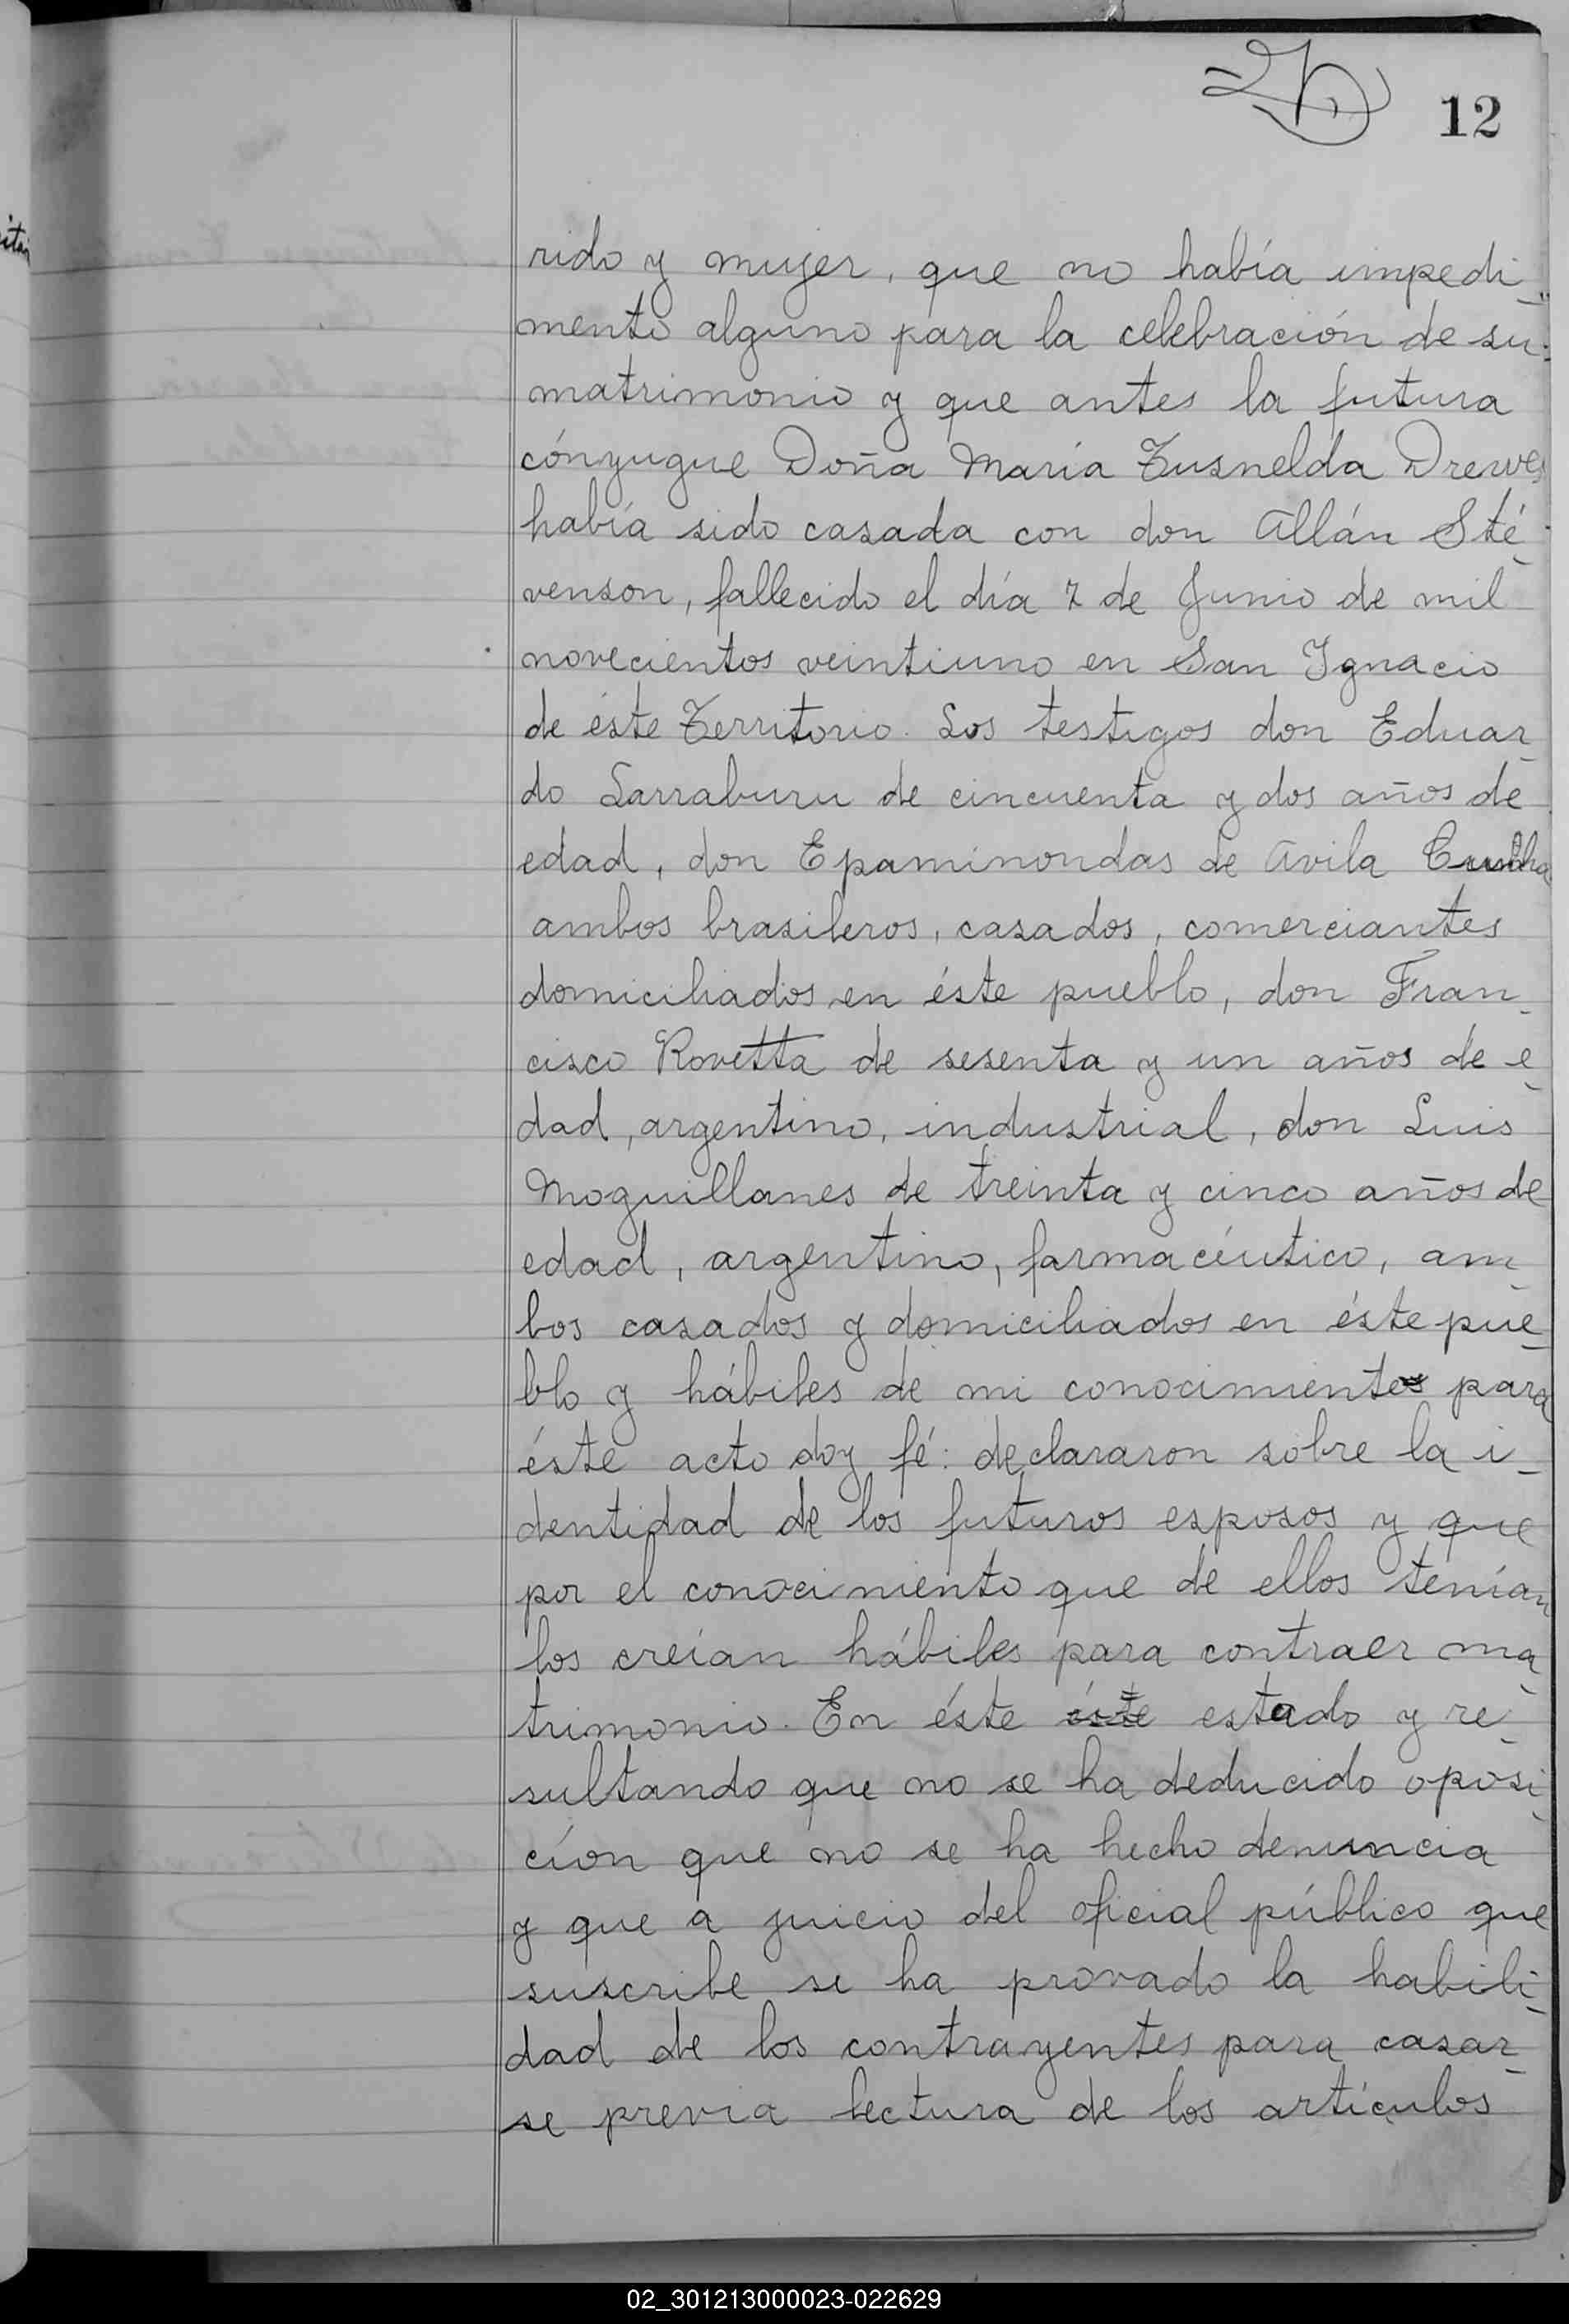 12
rido y mujer, que no había impedi_
mento alguno para la celebración de su
matrimonio y que antes la futura
cónyugue Doña Maria Tusnelda Drewes
había sido casada con don Allán Sté_
venson, fallecido el día 7 de Junio de mil
novecientos veintiuno en San Ignacio
de éste Territorio. Los testigos don Eduar_
do Larraburu de cincuenta y dos años de
edad, don Epaminondas de Avila Cunha
ambos brasileros, casados, comerciantes
domiciliados en éste pueblo, don Fran_
cisco Rovetta de sesenta y un años de e_
dad, argentino, industrial, don Luis
Moguillanes de treinta y cinco años de
edad, argentino, farmacéutico, am_
bos casados y domiciliados en éste pue_
blo y hábiles de mi conocimiento para
éste acto doy fé: declararon sobre la i_
dentidad de los futuros esposos y que
por el conocimiento que de ellos tenían
los creían hábiles para contraer ma_
trimonio. En éste éste estado y re_
sultando que no se ha deducido oposi_
cíon que no se ha hecho denuncia
y que a juicio del oficial público que
suscribe se ha provado la habili_
dad de los contrayentes para casar_
se previa lectura de los artículos
02_301213000023-022629